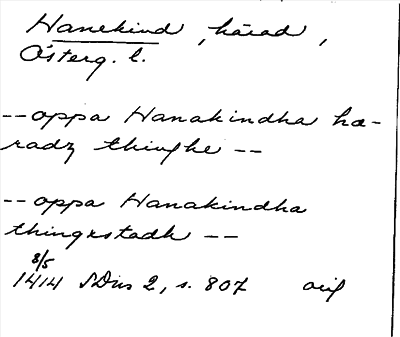 Hanekind, härad,
Österg. l.
--oppa Hanakindha hæ-
radz thinghe --
--oppa Hanakindha
thingxstadh --
8/5
1414 SDns 2, s. 807 orig